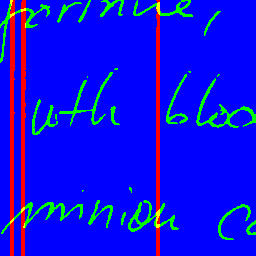 fortune,
with bloo
minion ca